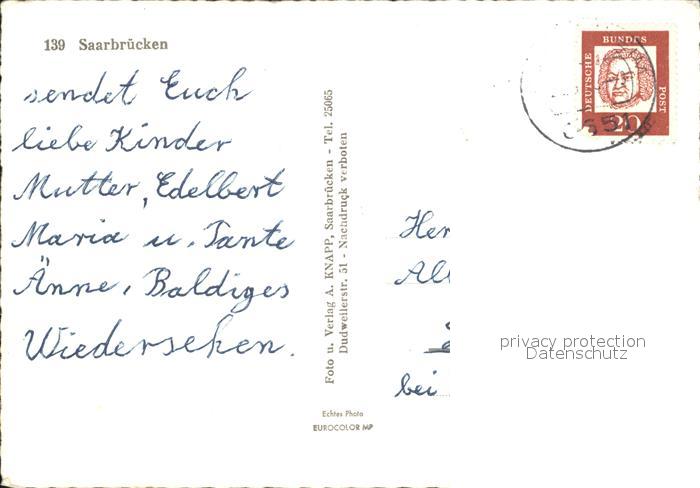 139 Saarbrücken
sendet Euch
liebe Kinder
Mutter, Edelbert
Maria u. Tante
Änne, Baldiges
Wiedersehen.
Foto u. Verlag A. KNAPP, Saarbrücken - Tel. 25065
Dudweilerstr. 51 - Nachdruck verboten
Echtes Photo
EUROCOLOR MP
DEUTSCHE
BUNDES
POST
20
Her
bei
privacy protection
Datenschutz